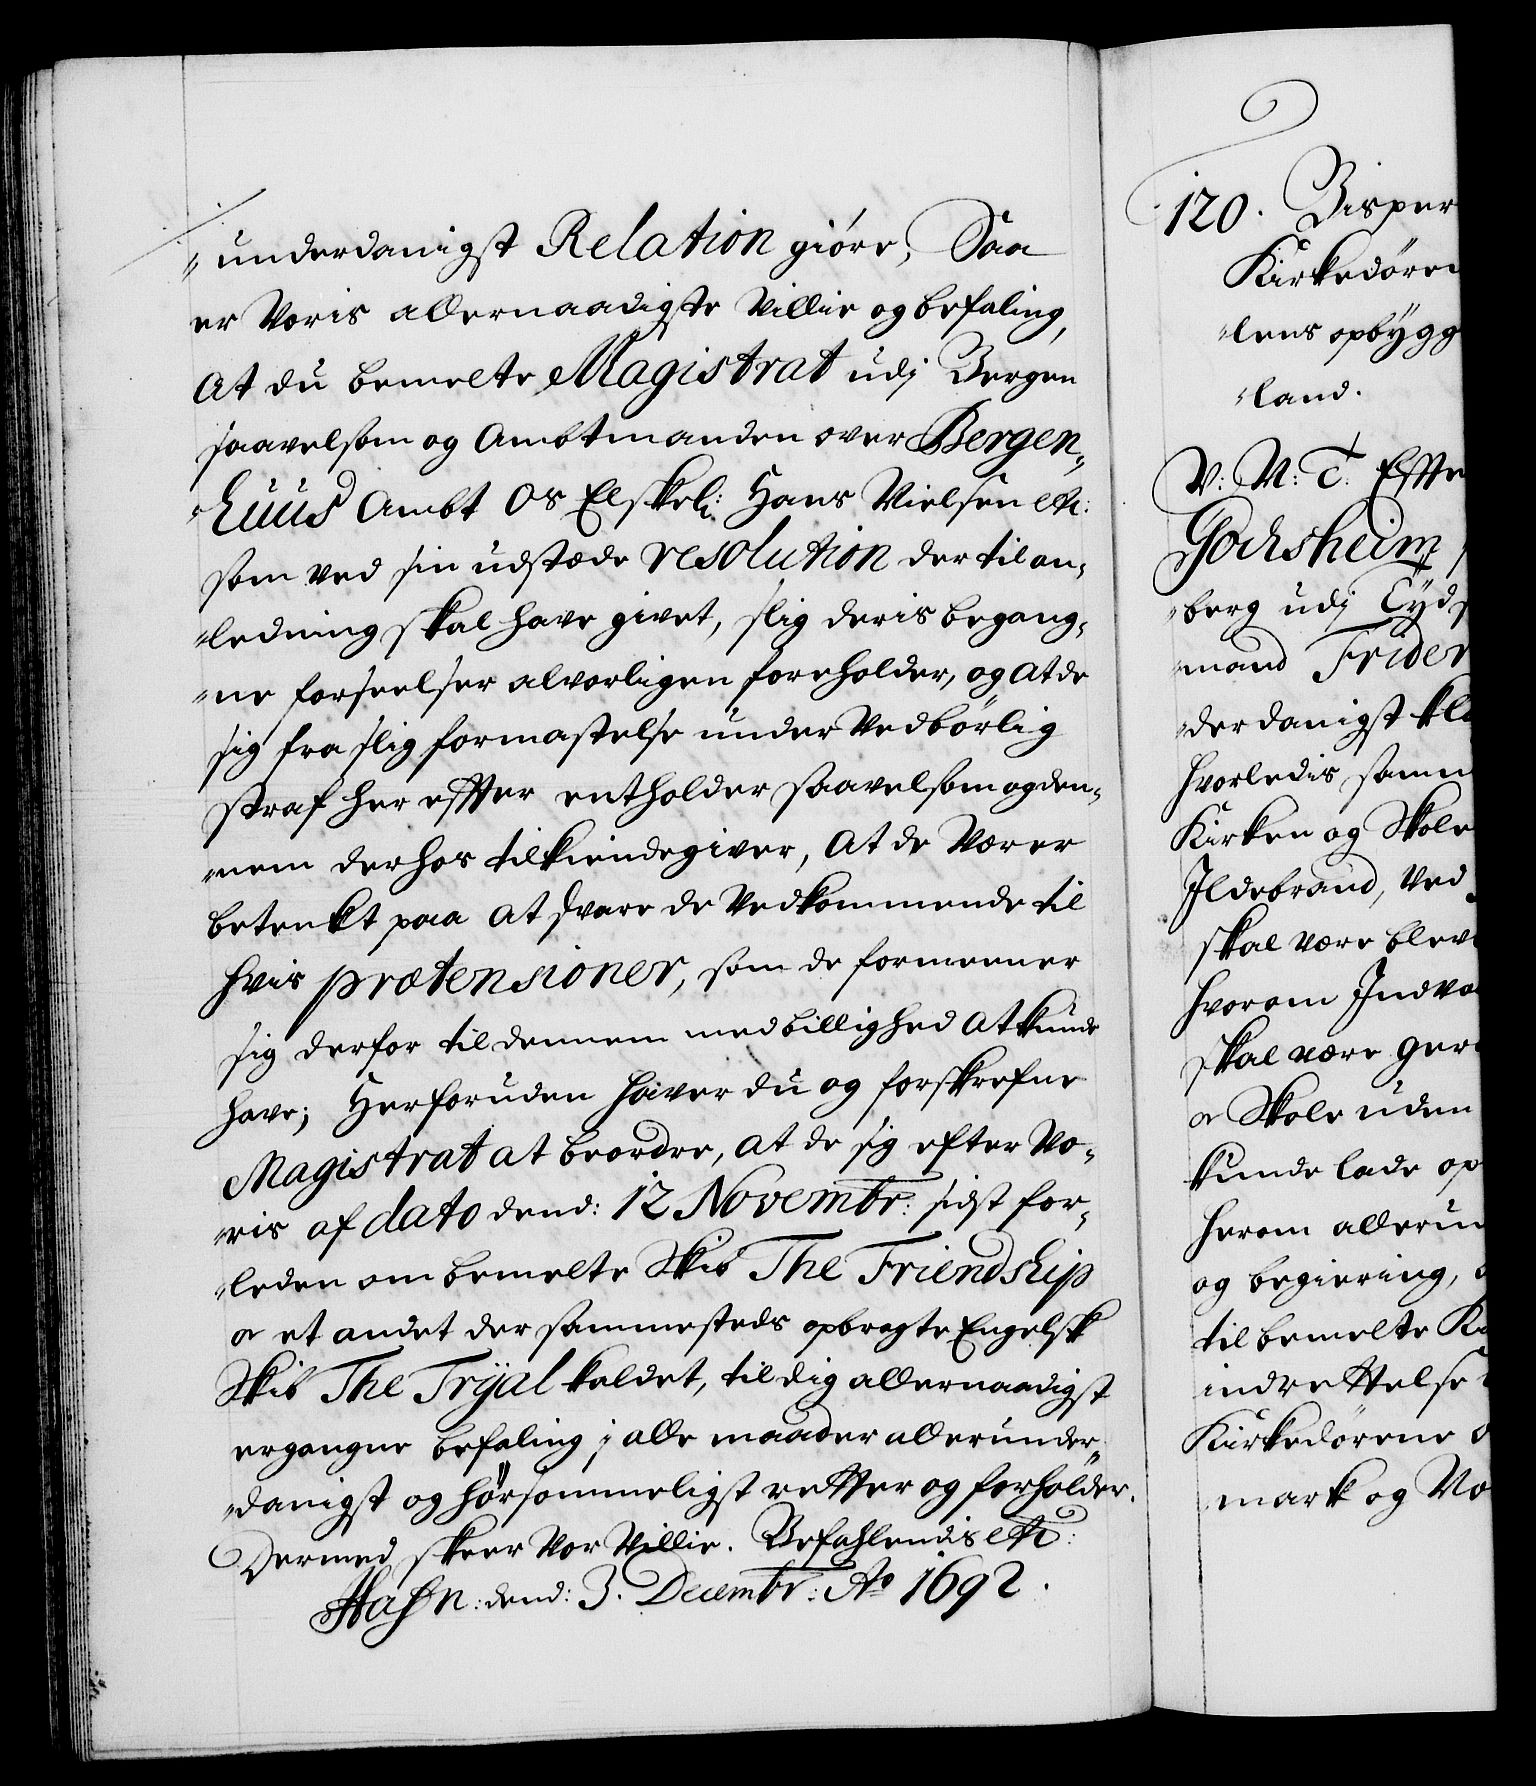 underdanigst Relation giöre, Saa
er Voris allernaadigste Villie og befaling,
at du bemelte Magistrat udj Bergen
saavelsom og Ambtmanden over Bergen„
„huus Ambt Os Elskel: Hans Nielsen etc:
som ved sin udstæde resolution der til an„
„ledning skal have givet, slig deris begang„
„ne forseelser alvorligen foreholder, og at de
sig fra slig formastelse under Vedbörlig
straf her effter entholder saavelsom og den„
„nem derhos tilkiendegiver, at de Værer
betenkt paa at svare de Vedkommende til
hvis prætensioner, som de formeener
sig derfor til dennem med billighed at kunde
have; Herforuden haver du og forskrefne
Magistrat at beordre, at de sig efter Vo„
„ris af dato dend: 12 Novembr: sidst for„
„leden om bemelte Skib The Friendship
og et andet der sammesteds opbragte Engelsk
Skib The Tryal kaldet, til dig allernaadigst
ergangne befaling i alle maader allerunder„
„danigst og hörsommeligst retter og forholder.
Dermed skeer Vor Villie. Befahlendis etc:
Hafn: dend: 3. Decembr: Ao 1692.
120. Bisper
Kirkedören
„lens opbygg
„land.
V: N: T: Effte
Godsheim
„berg udj Eyds
„mand Frider
„derdanigst kla
hvorledis samm
Kirken og Skole
Ildebrand, ved
skal være blev
hvorom Indvo
skal være ger
og Skole uden
kunde lade op
herom allerun
og begiering, a
til bemelte Ki
indrettelse
Kirkedörene
mark og No